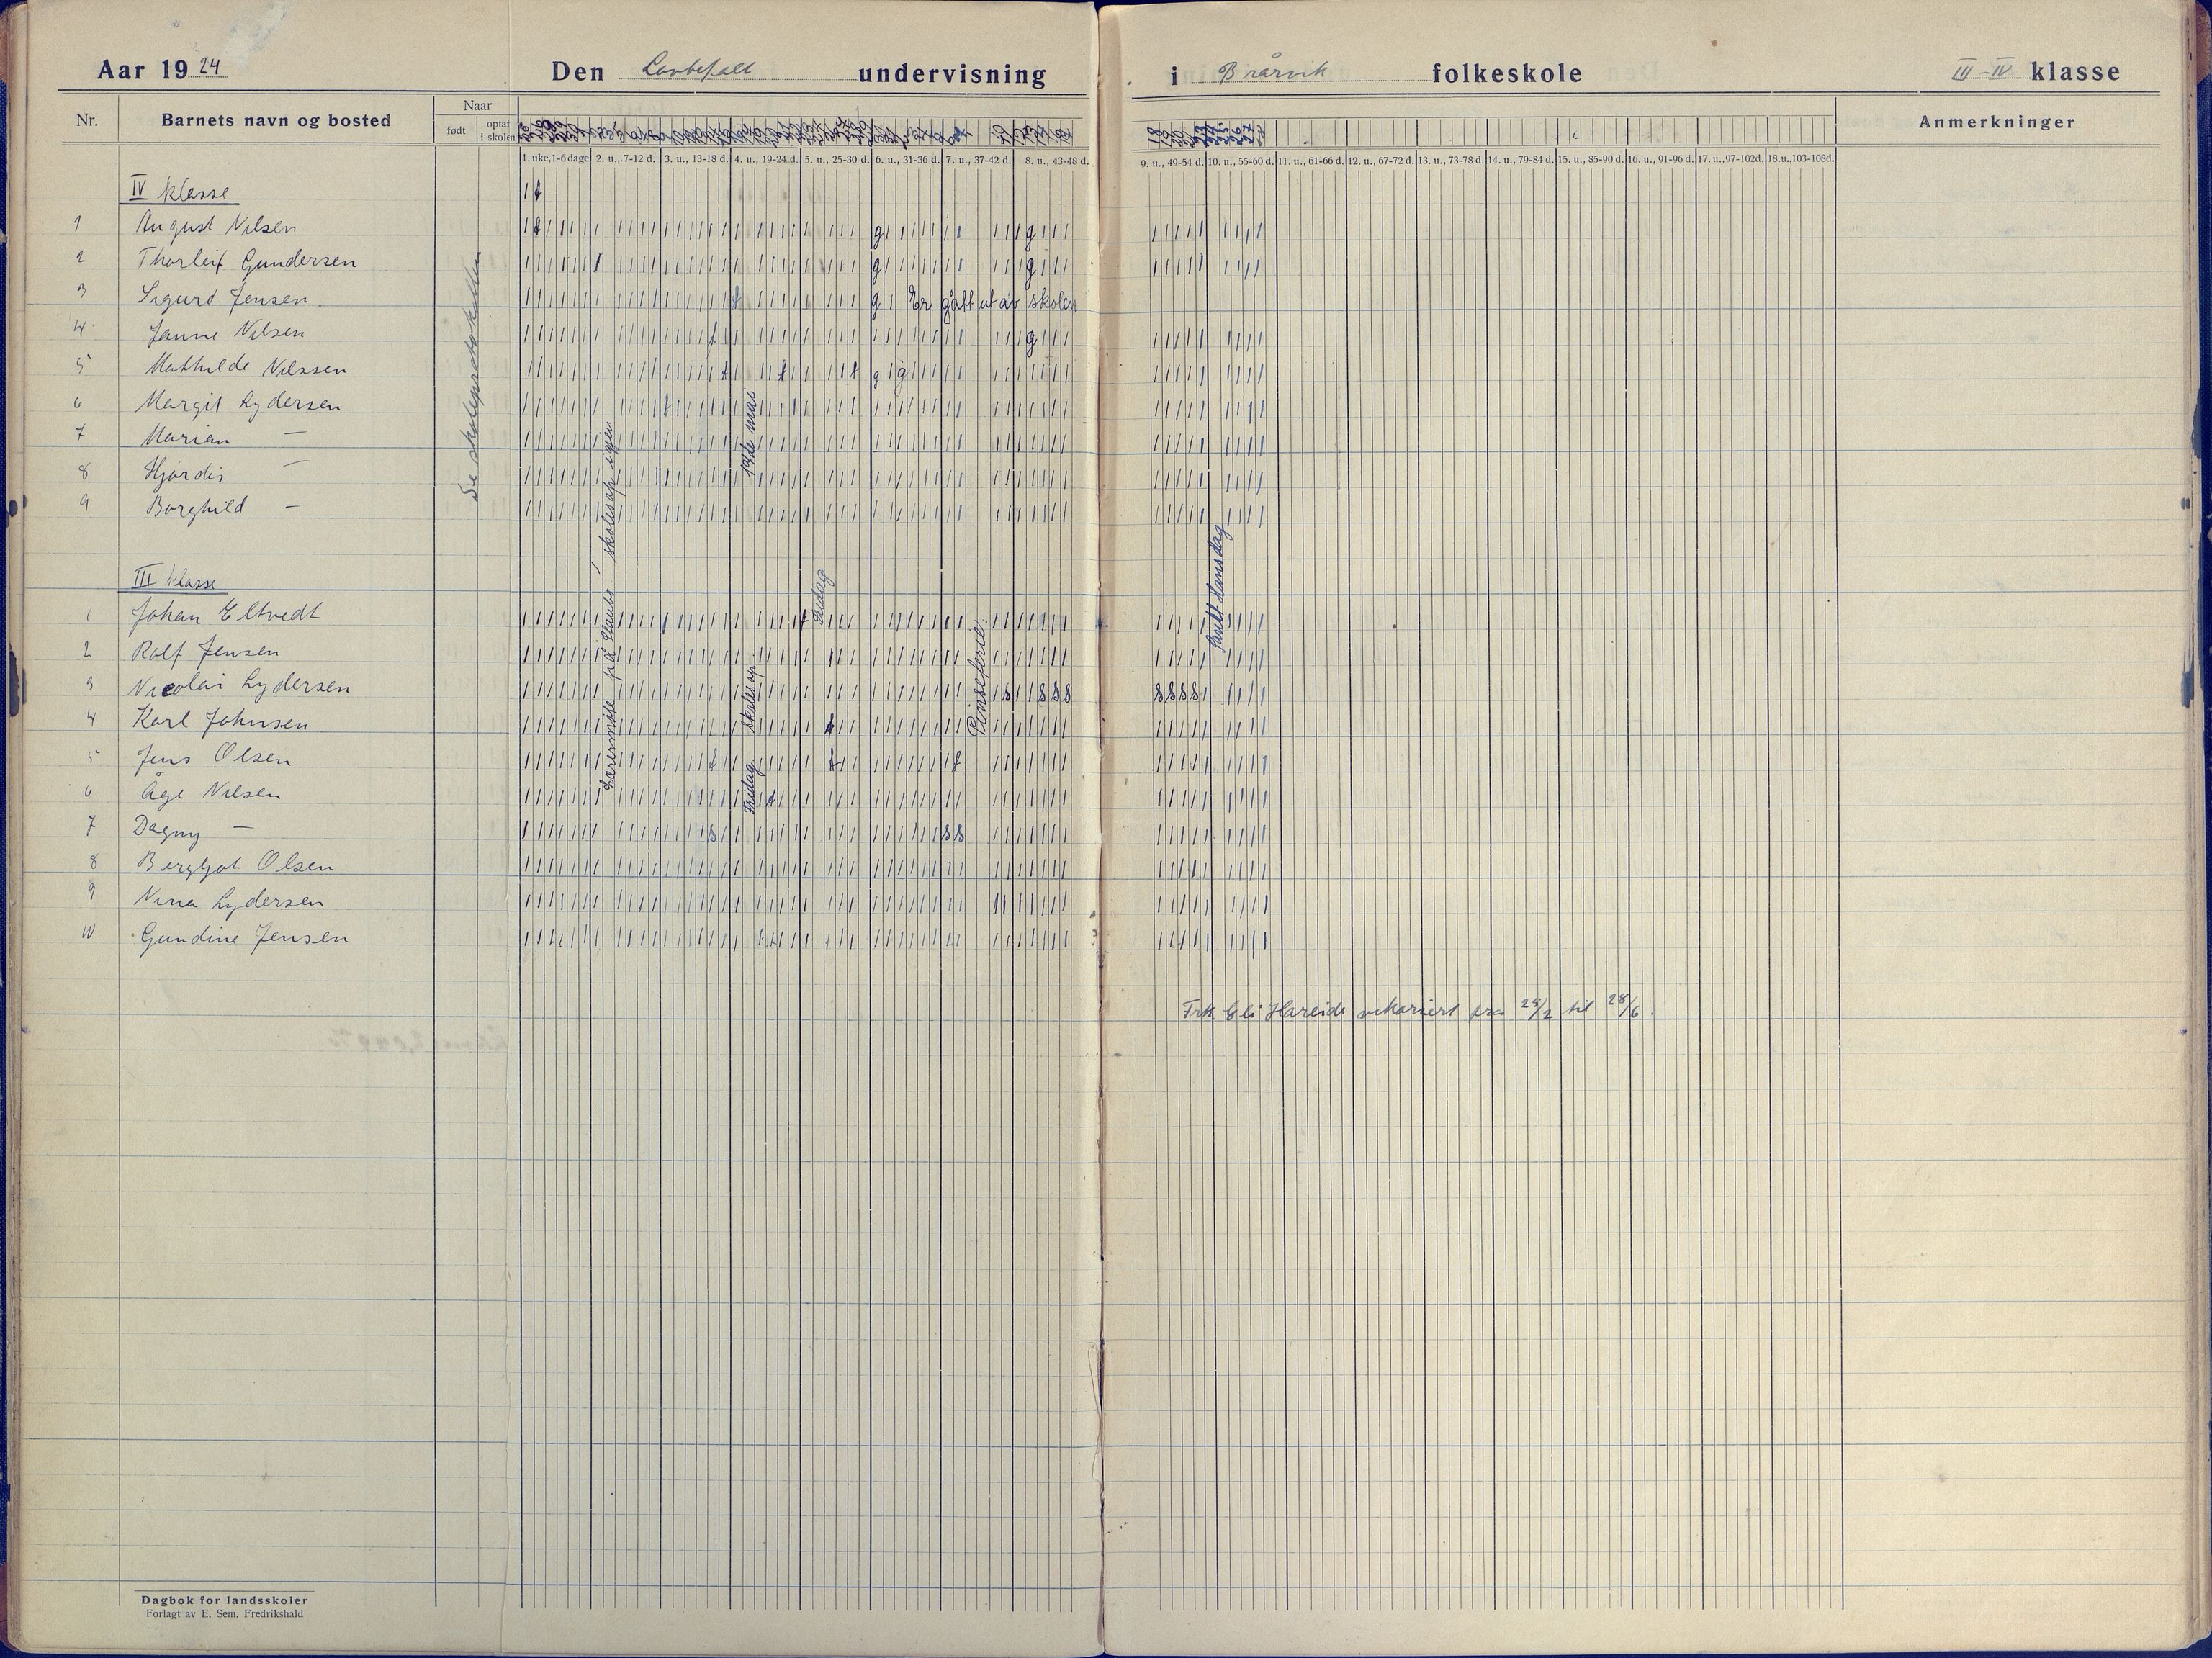 Aar 1924 Den Lovbefalt undervisning i Brårvik folkeskole III-IV klasse
Nr. Barnets navn og bosted Naar født optat i skolen Anmerkninger
1. uke, 1-6 dage 2. u., 7-12 d. 3. u., 13-18 d. 4. u., 19-24 d. 5. u., 25-30 d. 6. u., 31-36 d. 7. u., 37-42 d. 8. u., 43-48 d. 9. u., 49-54 d. 10. u., 55-60 d. 11. u., 61-66 d. 12. u., 67-72 d. 13. u., 73-78 d. 14. u., 79-84 d. 15. u., 85-90 d. 16. u., 91-96 d. 17. u., 97-102d. 18.u., 103-108d.
IV klasse
1 August Nilsen
2 Thorleif Gundersen
3 Sigurd Jensen Er gått ut av skolen
4 Janne Nilsen
5 Mathilde Nilssen
6 Margit Lydersen
7 Marian —
8 Hjørdis —
9 Borghild —
Se skoleprotokollen
17de mai
III klasse
1 Johan Eltvedt
2 Rolf Jensen
3 Nicolai Lydersen
4 Karl Johnsen
5 Jens Olsen
6 Åge Nilsen
7 Dagny —
8 Bergljot Olsen
9 Nina Lydersen
10 Gundine Jensen
Lærermøte på Staubø
skolesøp igjen
Fridag skolesøp
Fridag
Pinseferie
Sankt Hansdag
Frk Eli Hareide vikariert fra 25/2 til 28/6.
Dagbok for landsskoler
Forlagt av E. Sem, Fredrikshald